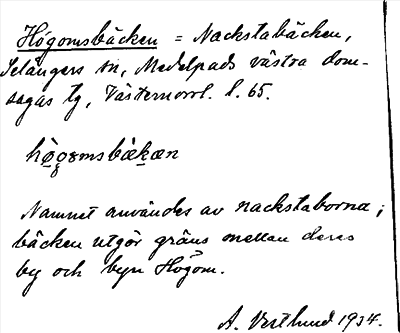 Högomsbäcken = Nackstabäcken,
Selångers sn, Medelpads västra dom-
sagas tg, Västernorrl. l. 65.
högomsbäkæn
Namnet användes av nackstaborna;
bäcken utgör gräns mellan deras
by och byn Högom.
A. Vestlund 1934.